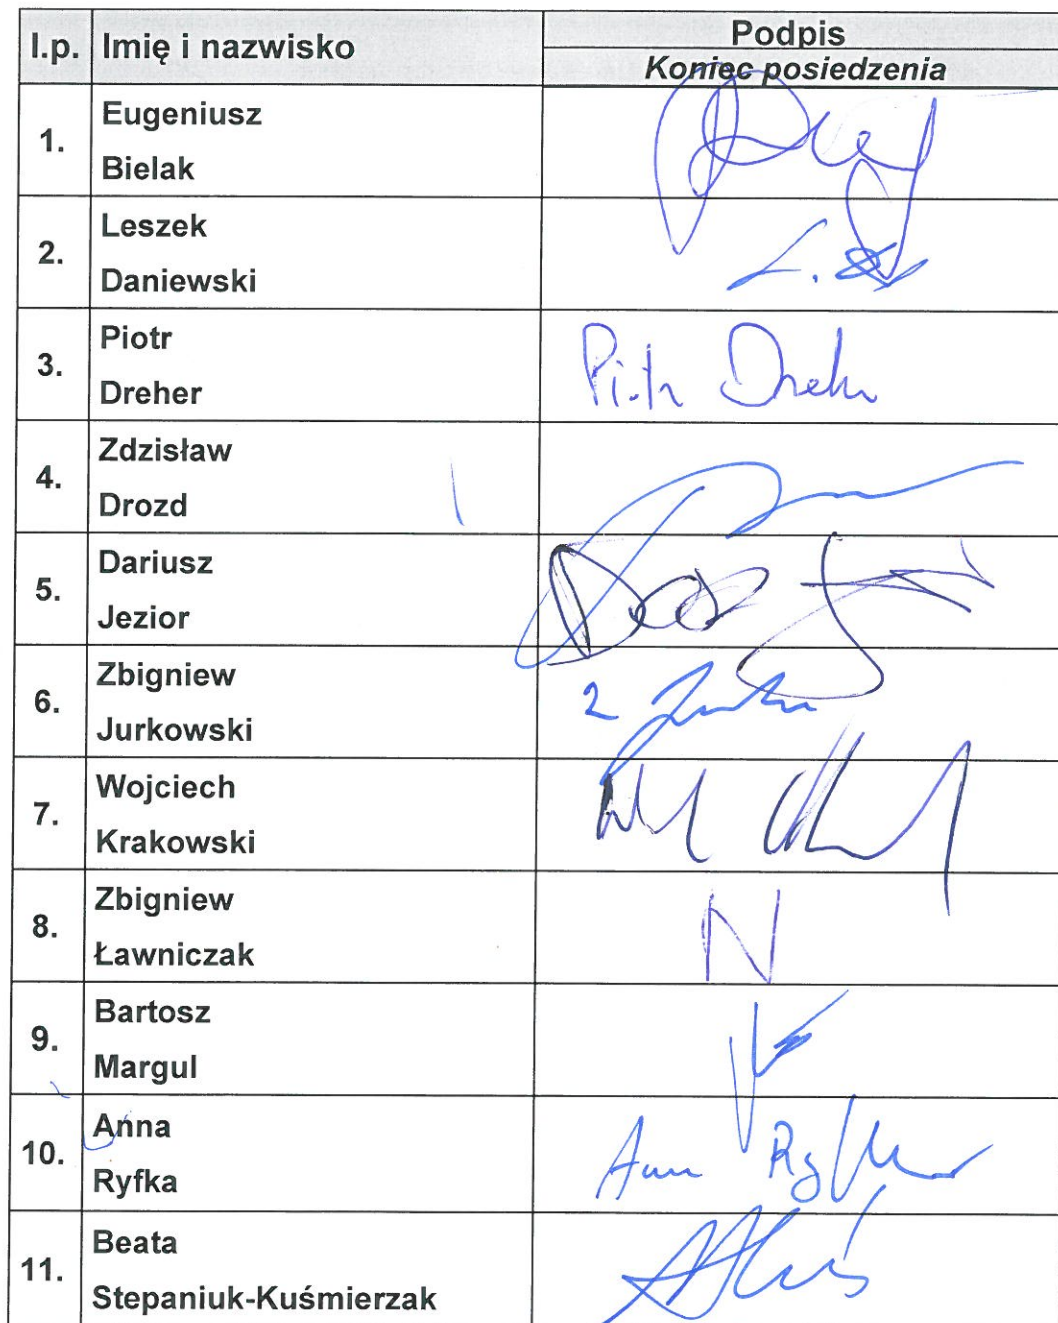 l.p. Imię i nazwisko Podpis
Koniec posiedzenia
1. Eugeniusz
Bielak
2. Leszek
Daniewski
3. Piotr
Dreher
Piotr Dreher
4. Zdzisław
Drozd
5. Dariusz
Jezior
6. Zbigniew
Jurkowski
7. Wojciech
Krakowski
8. Zbigniew
Ławniczak
N
9. Bartosz
Margul
10. Anna
Ryfka
11. Beata
Stepaniuk-Kuśmierzak